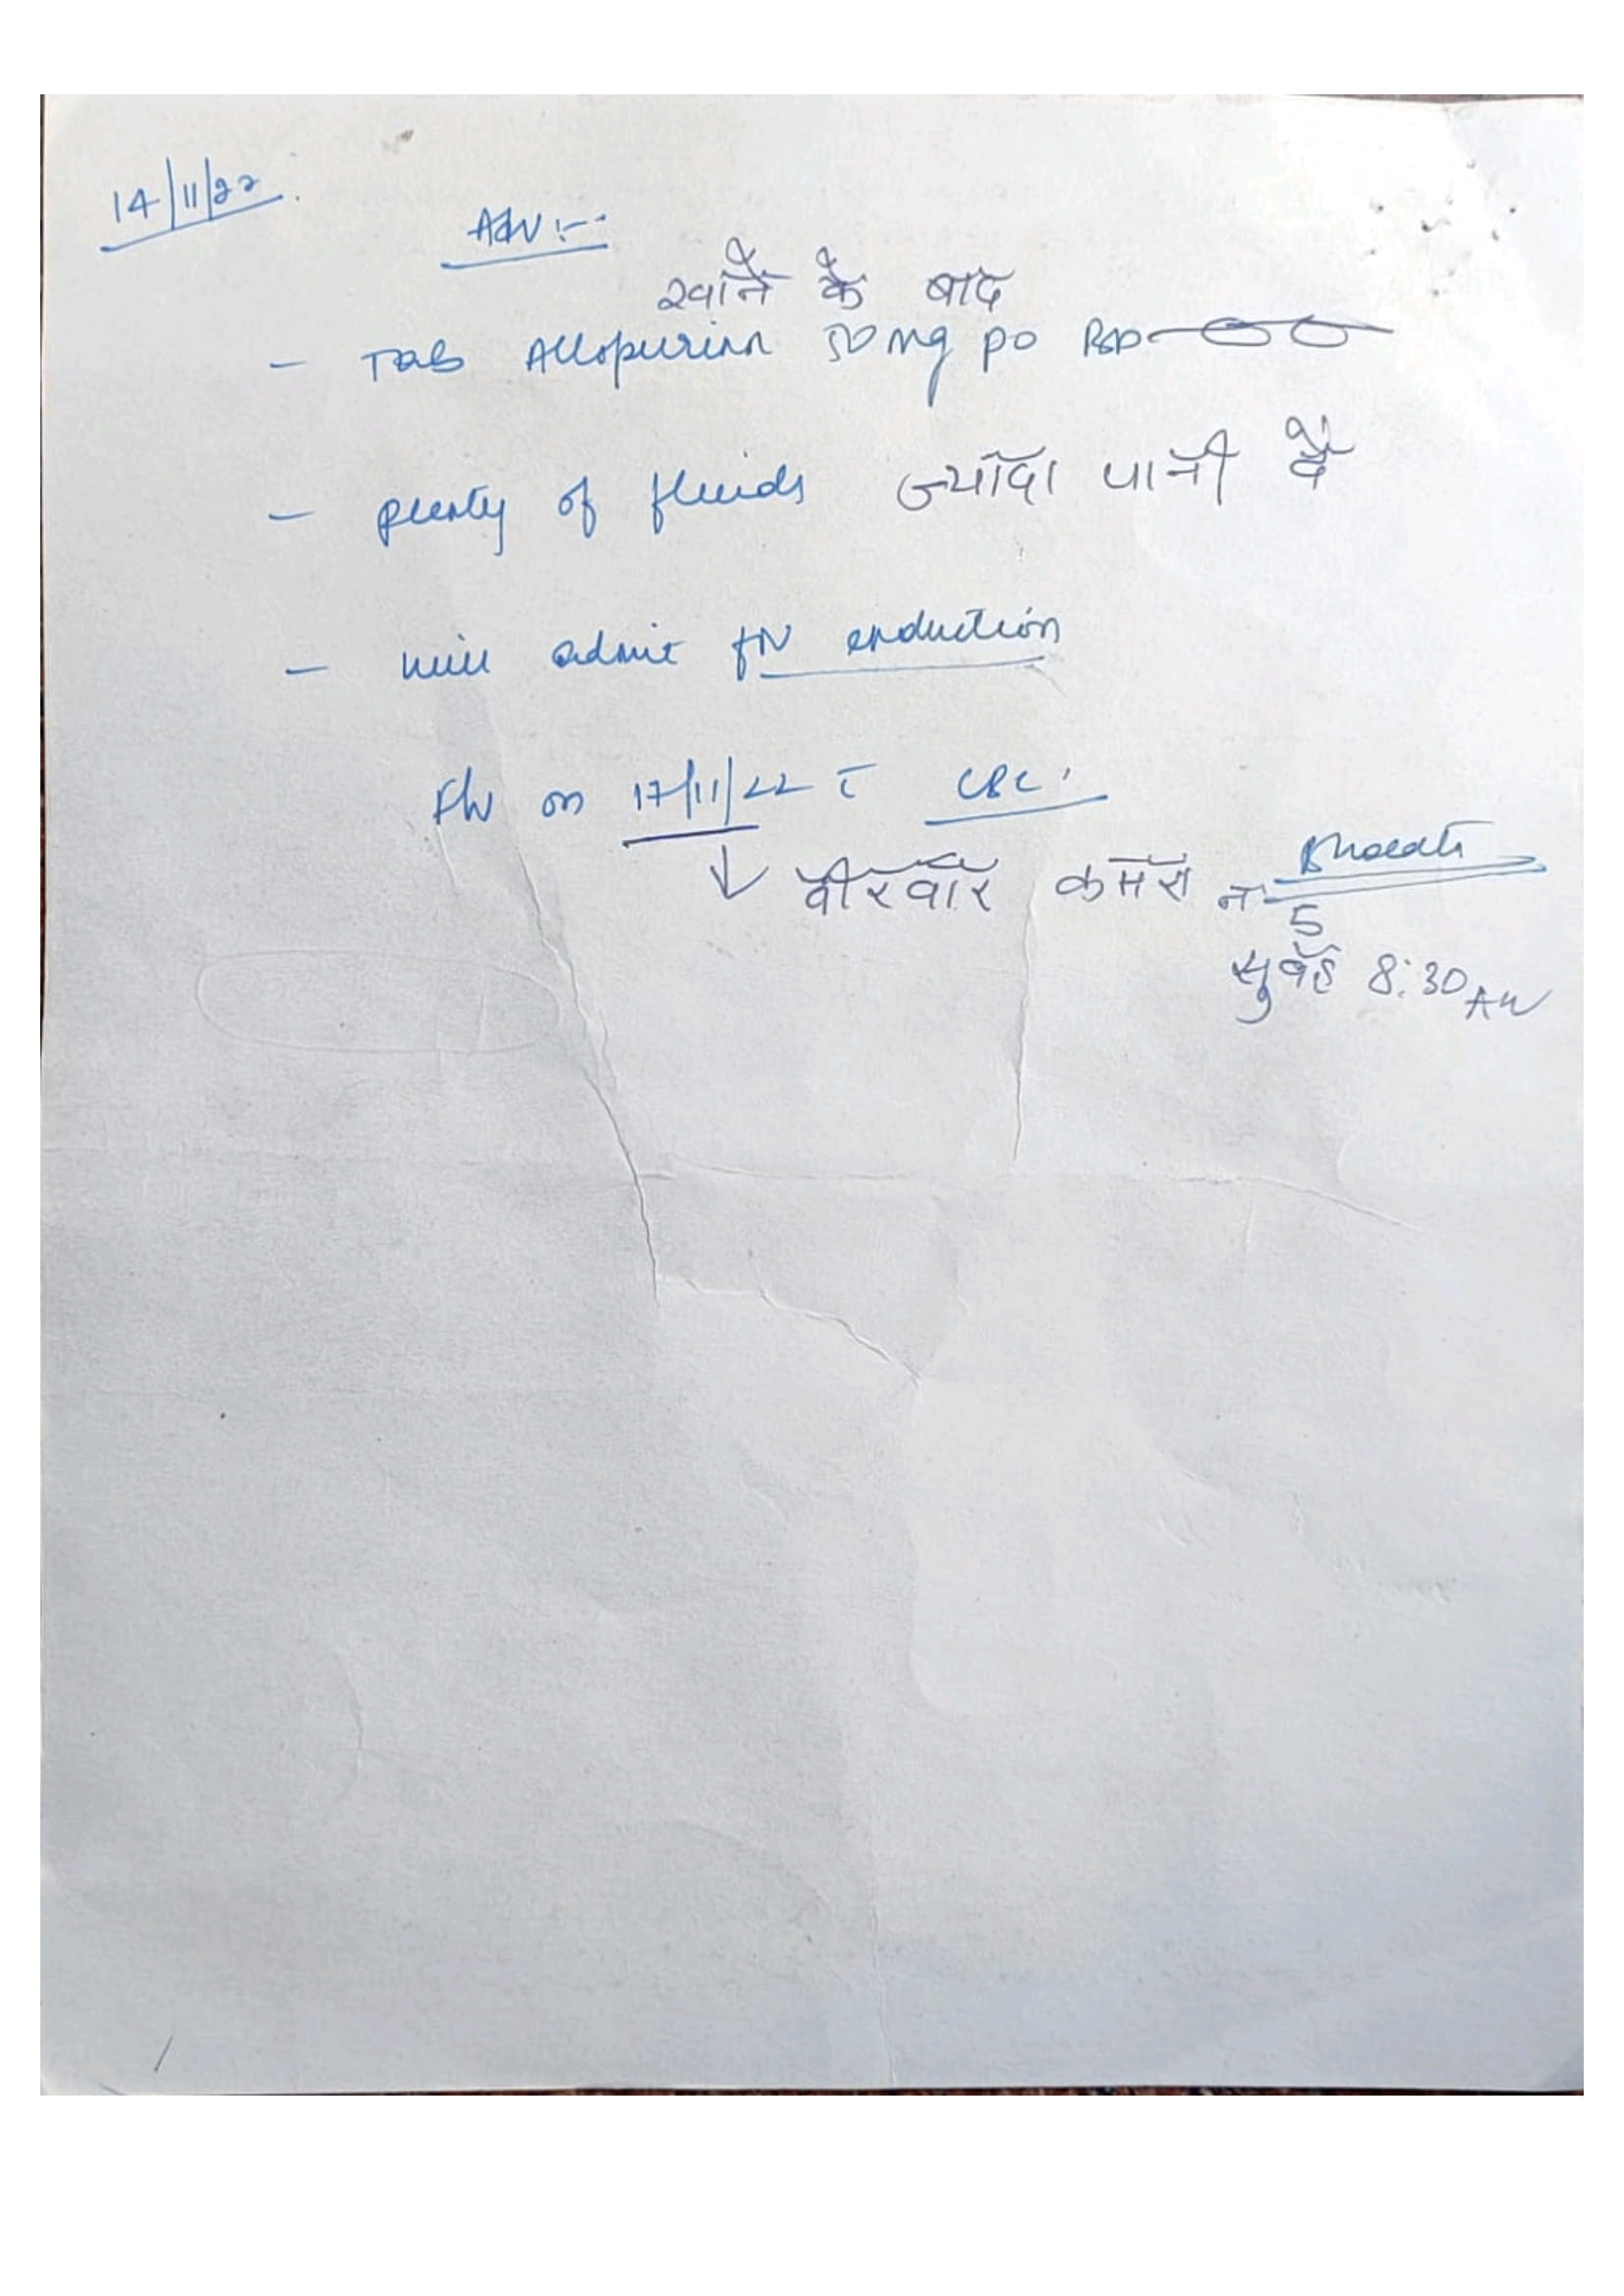 14/11/22.
Adv :-
खाने के बाद
- Tab Allopurinn 50 mg po BD
- plenty of fluids ज्यादा पानी दें
- will admit for induction
F/U on 17/11/22 c̄ CBC.
↓ वीरवार कमरा न 5
Bharati
सुबह 8:30 AM